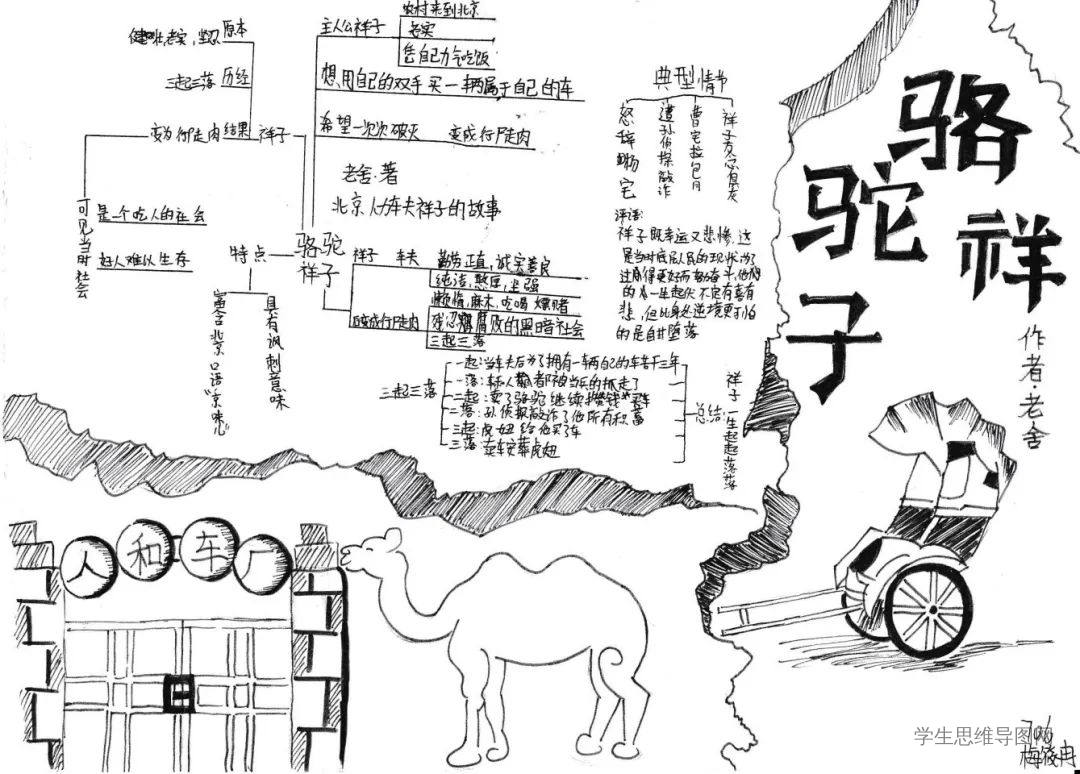 骆驼
祥子
作者·老舍
健壮,老实,坚忍
原本
三起三落
历经
变为行尸走肉
结果
祥子
可见当时社会
是一个吃人的社会
妇人难以生存
主人公祥子
农村来到北京
老实
凭自己力气吃饭
想用自己的双手买一辆属于自己的车
希望一次次破灭
变成行尸走肉
老舍·著
北京人力车夫祥子的故事
骆驼
祥子
特点
富含北京口语“京味儿”
具有讽刺意味
祥子
车夫
勤劳正直,诚实善良
纯洁,憨厚,坚强
变成行尸走肉
懒惰,麻木,吃喝嫖赌
腐败的黑暗社会
三起三落
典型情节
怒辞杨宅
遭孙侦探敲诈
曹宅拉包月
评语:
祥子既幸运又悲惨,这
是当时底层人民的现状,为了
过得更好而努力奋斗,他们
的一生起伏不定有喜有
悲,但比身处逆境更可怕
的是自甘堕落
三起三落
一起:当车夫后为了拥有一辆自己的车苦干三年
一落:车和人都被当兵的抓走了
二起:卖了骆驼继续攒钱买车
二落:孙侦探敲诈了他所有积蓄
三起:虎妞给他买了车
三落:卖车安葬虎妞
总结:
祥子一生起起落落
人和车厂
706
学生思维导图网